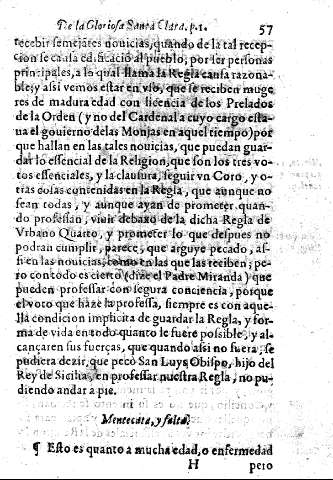 De la Gloriosa Santa Clara. p. 1. 57
recebir semejãtes nouicias, quando de la tal recep-
cion se causa edificació al pueblo, por ser personas
principales, a lo qual llama la Regla causa razona-
ble; y assi vemos estar en vso, que se reciben muge
res de madura edad con licencia de los Prelados
de la Orden (y no del Cardenal a cuyo cargo esta-
ua el gouierno de las Monjas en aquel tiempo) por
que hallan en las tales nouicias, que puedan guar-
dar lo essencial de la Religion, que son los tres vo
tos essenciales, y la clausura, seguir vn Coro, y o-
tras cosas contenidas en la Regla, que aunque no
sean todas, y aunque ayan de prometer quan-
do professan, viuir debaxo de la dicha Regla de
Vrbano Quarto, y prometer lo que despues no
podran cumplir, parece, que arguye pecado, as-
si en las nouicias, como en las que las reciben; pe-
ro con todo es cierto (dize el Padre Miranda) que
pueden professar con segura conciencia, porque
el voto que haze la professa, siempre es con aque-
lla condicion implicita de guardar la Regla, y for-
ma de vida en todo quanto le fuere possible, y al-
cançaren sus fuerças, que quando assi no fuera, se
pudiera dezir, que pecò San Luys Obispo, hijo del
Rey de Sicilia, en professar nuestra Regla, no pu-
diendo andar a pie.
Mentecata, y falta.
¶ Esto es quanto a mucha edad, o enfermedad
H pero